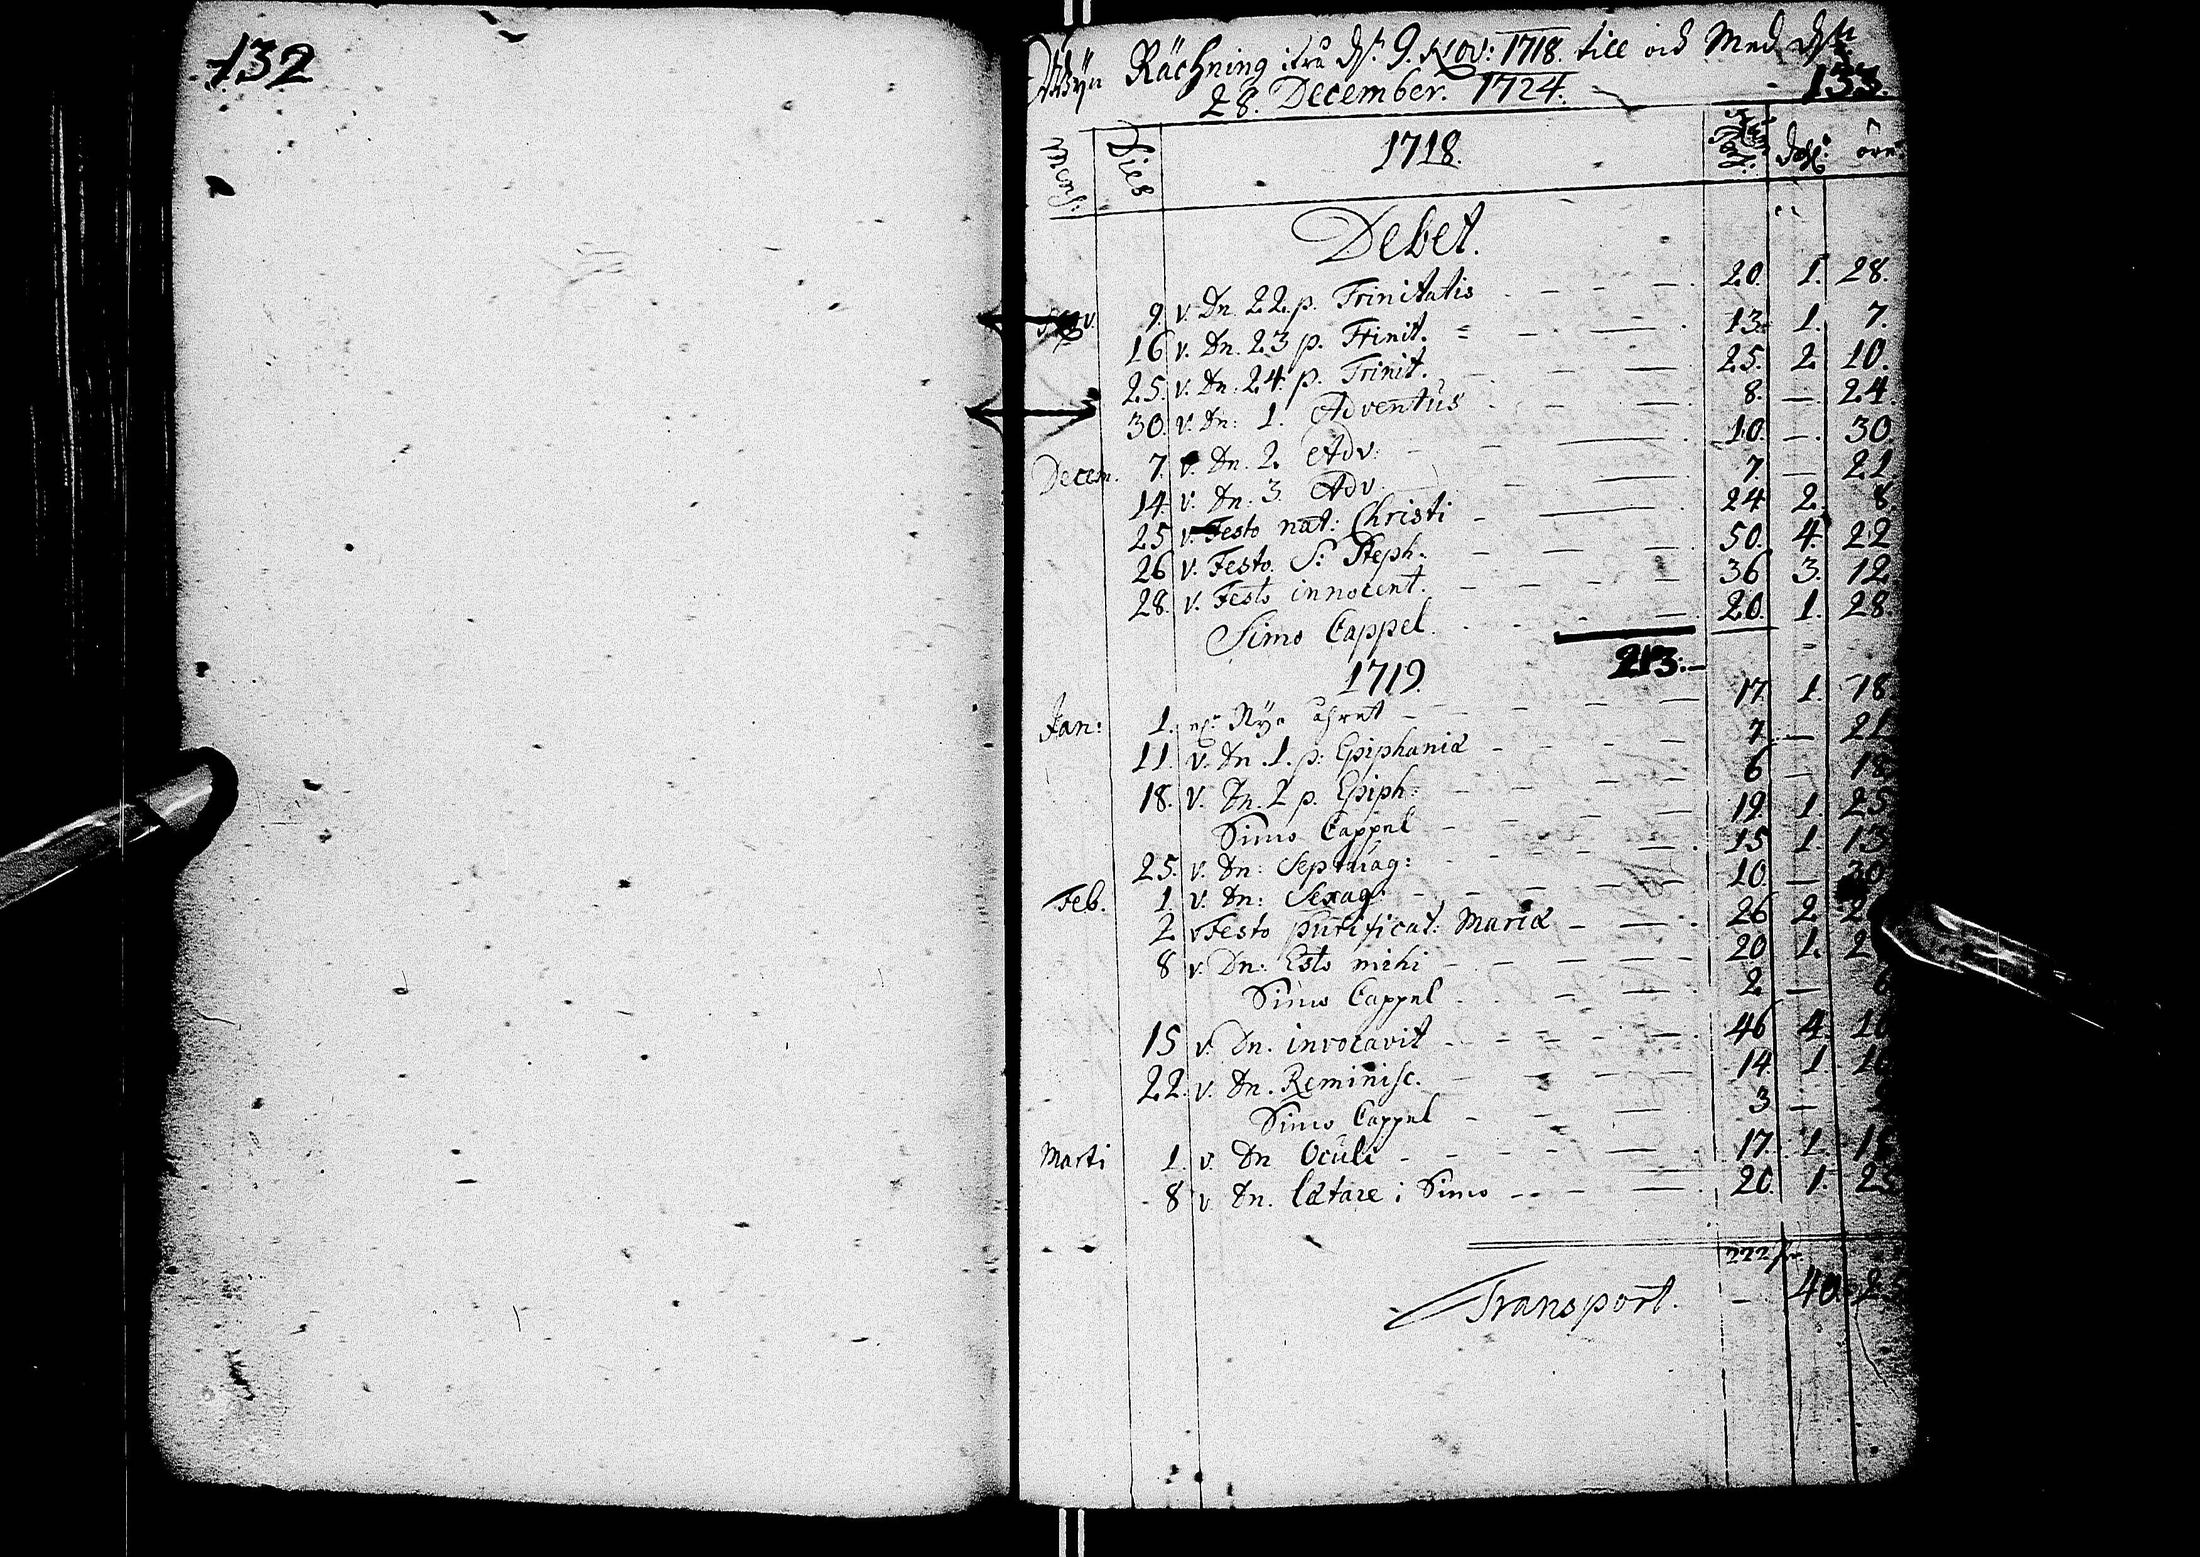 132
Wijn Rächning ifrå d. 9. Nov: 1718. till och Med d.
28. December. 1724. 133.
Mens: Dies 1718. öre.
Debet.
Nov. 9. v. Dn. 22. p. Trinitatis 20. 1. 28.
16 v. Dn. 23 p. Trinit. 13. 1. 7.
25. v. Dn. 24. p. Trinit. 25. 2 10.
30. v. Dn: 1. Adventus 8. — 24.
Decem. 7. v. Dn. 2. Adv: 10. — 30.
14. v. Dn. 3. Adv. 7. — 21
25 v. Festo nat: Christi 24 2. 8.
26 v. Festo. S: Steph. 50. 4. 22
28. v. Festo innocent. 36 3. 12
Simo Cappel. 20. 1. 28.
213.
1719.
Jan: 1. Nÿe åhret 17. 1. 18.
11. v. Dn. 1. p. Epiphaniæ 7. — 21
18. v. Dn. 2 p. Epiph: 6 — 18
Simo Cappel 19. 1. 25
25. v. Dn: Septuag: 15 1. 13
Feb. 1. v. Dn: Sexag: 10. — 30
2 v Festo purificat: Mariæ 26 2.
8 v. Dn: Esto mihi 20 1.
Simo Cappel 2 —
15 v. Dn. invocavit 46 4.
22. v. Dn. Reminisc. 14. 1
Simo Cappel 3 —
Marti 1. v. Dn Oculi 17. 1.
8 v. Dn. lætare i Simo 20. 1.
222
Transport. — 40.